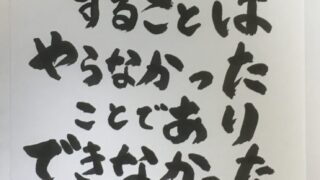 することは
やらなかったり
ことであり
できなかった